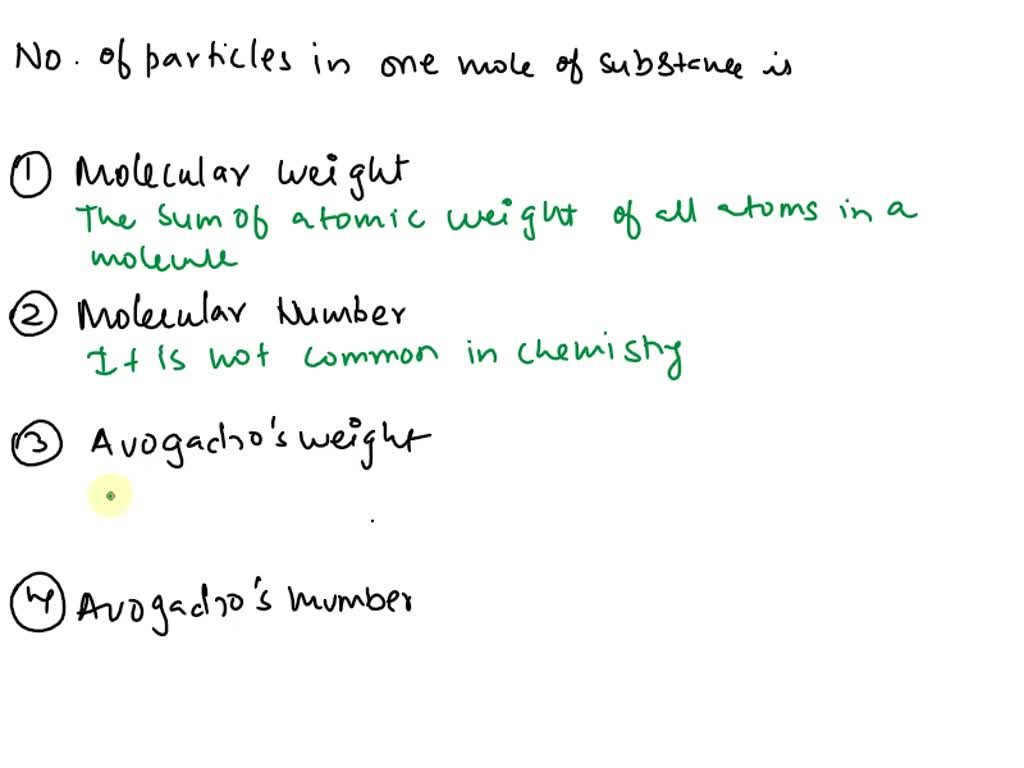 No. of particles in one mole of substance is
① Molecular weight
The sum of atomic weight of all atoms in a
molecule
② Molecular Number
It is not common in chemistry
③ Avogadro's weight
④ Avogadro's number